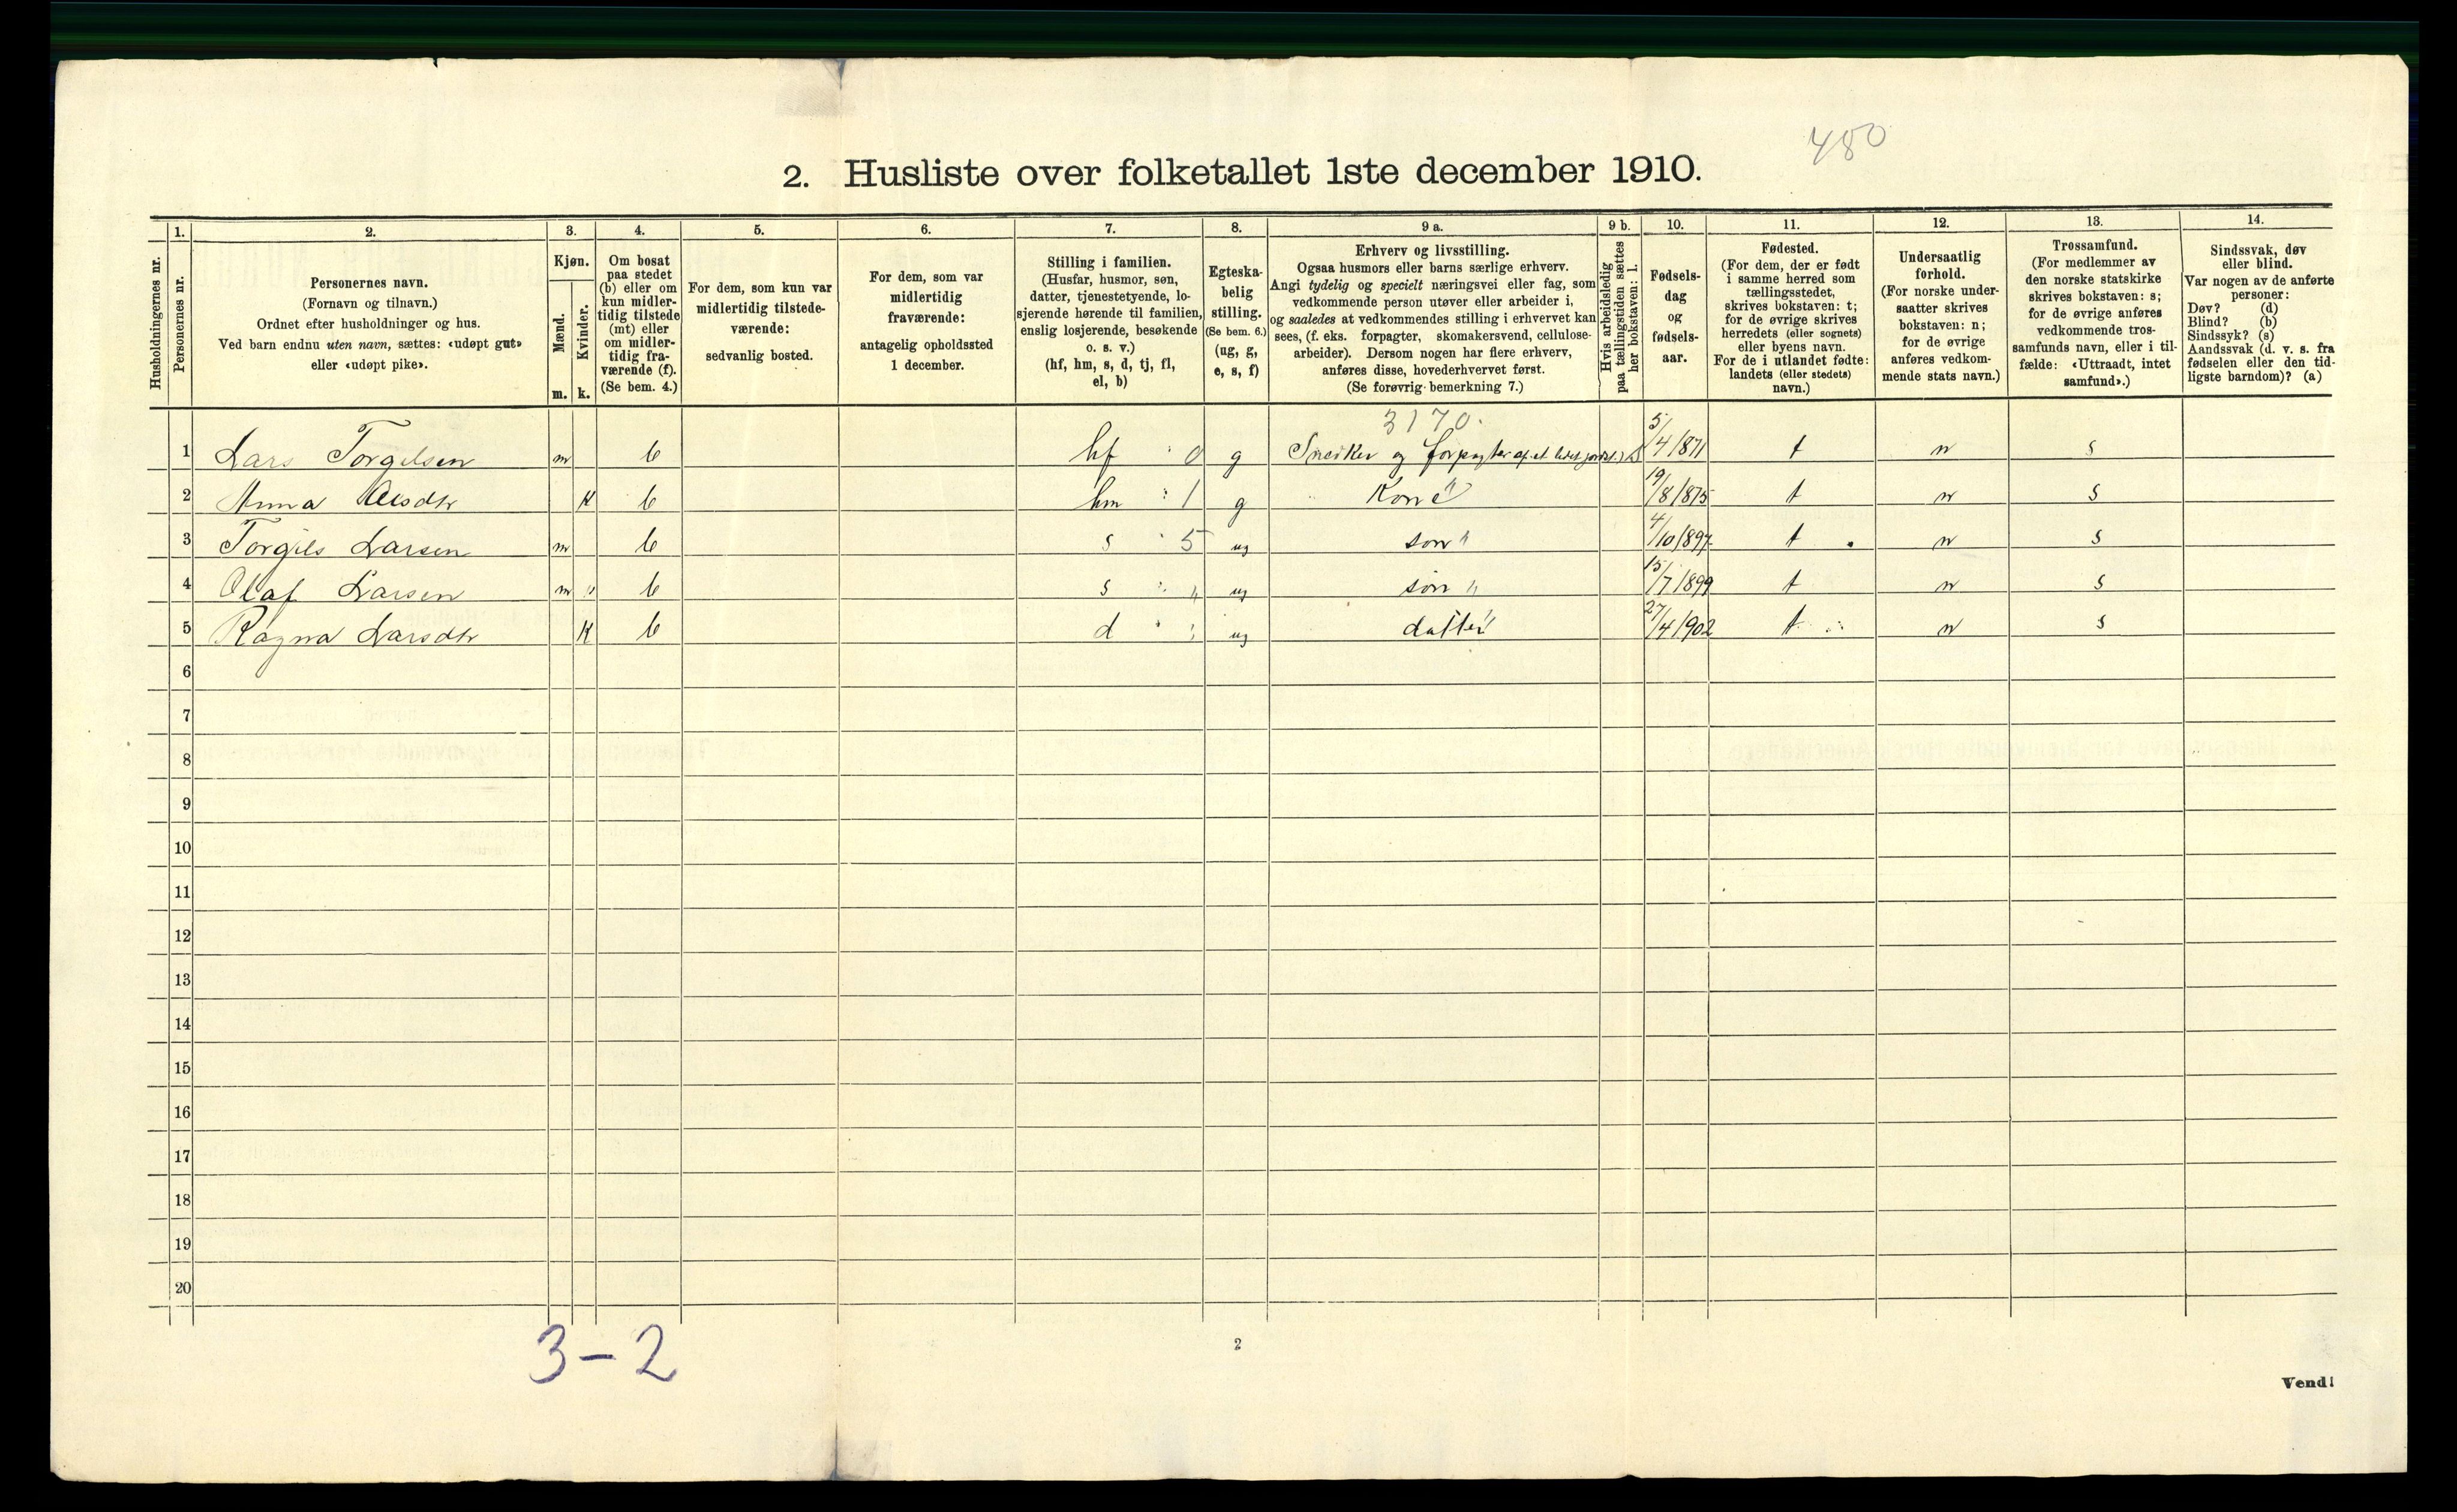 480
2. Husliste over folketallet 1ste december 1910.
Husholdningernes nr.
1.
Personernes nr.
2.
Personernes navn.
(Fornavn og tilnavn.)
Ordnet efter husholdninger og hus.
Ved barn endnu uten navn, sættes: «udøpt gut»
eller «udøpt pike».
3.
Kjøn.
Mænd.
Kvinder.
m. k.
4.
Om bosat
paa stedet
(b) eller om
kun midler-
tidig tilstede
(mt) eller
om midler-
tidig fra-
værende (f).
(Se bem. 4.)
5.
For dem, som kun var
midlertidig tilstede-
værende:
sedvanlig bosted.
6.
For dem, som var
midlertidig
fraværende:
antagelig opholdssted
1 december.
7.
Stilling i familien.
(Husfar, husmor, søn,
datter, tjenestetyende, lo-
sjerende hørende til familien,
enslig losjerende, besøkende
o. s. v.)
(hf, hm, s, d, tj, fl,
el, b)
8.
Egteska-
belig
stilling.
(Se bem. 6.)
(ug, g,
e, s, f)
9 a.
Erhverv og livsstilling.
Ogsaa husmors eller barns særlige erhverv.
Angi tydelig og specielt næringsvei eller fag, som
vedkommende person utøver eller arbeider i,
og saaledes at vedkommendes stilling i erhvervet kan
sees, (f. eks. forpagter, skomakersvend, cellulose-
arbeider). Dersom nogen har flere erhverv,
anføres disse, hovederhvervet først.
(Se forøvrig bemerkning 7.)
9 b.
Hvis arbeidsledig
paa tællingstiden sættes
her bokstaven: l.
10.
Fødsels-
dag
og
fødsels-
aar.
11.
Fødested.
(For dem, der er født
i samme herred som
tællingsstedet,
skrives bokstaven: t;
for de øvrige skrives
herredets (eller sognets)
eller byens navn.
For de i utlandet fødte:
landets (eller stedets)
navn.)
12.
Undersaatlig
forhold.
(For norske under-
saatter skrives
bokstaven: n;
for de øvrige
anføres vedkom-
mende stats navn.)
13.
Trossamfund.
(For medlemmer av
den norske statskirke
skrives bokstaven: s;
for de øvrige anføres
vedkommende tros-
samfunds navn, eller i til-
fælde: «Uttraadt, intet
samfund».)
14.
Sindssvak, døv
eller blind.
Var nogen av de anførte
personer:
Døv? (d)
Blind? (b)
Sindssyk? (s)
Aandssvak (d. v. s. fra
fødselen eller den tid-
ligste barndom)? (a)
3170.
1 Lars Torgilsen m b hf 0 g Sneiker og forpagter af et lidet 5/4 1871 t n s
2 Anna K b hm 1 g Kone " 19/8 1875 t n s
3 Torgils Larsen m b s 5 ug søn " 4/10 1897 t n s
4 Olaf Larsen m b s " ug søn " 15/7 1899 t n s
5 Ragna Larsdtr K b d ug datter " 27/4 1902 t n s
6
7
8
9
10
11
12
13
14
15
16
17
18
19
20
3-2
2
Vend!